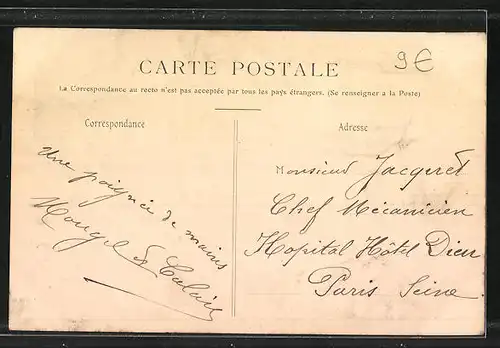 9€
CARTE POSTALE
La Correspondance au recto n'est pas acceptée par tous les pays étrangers. (Se renseigner a la Poste)
Correspondance
Une poignée de mains
Adresse
Monsieur Jacqeret
Chef Mécanicien
Hopital Hôtel Dieu
Paris Seine